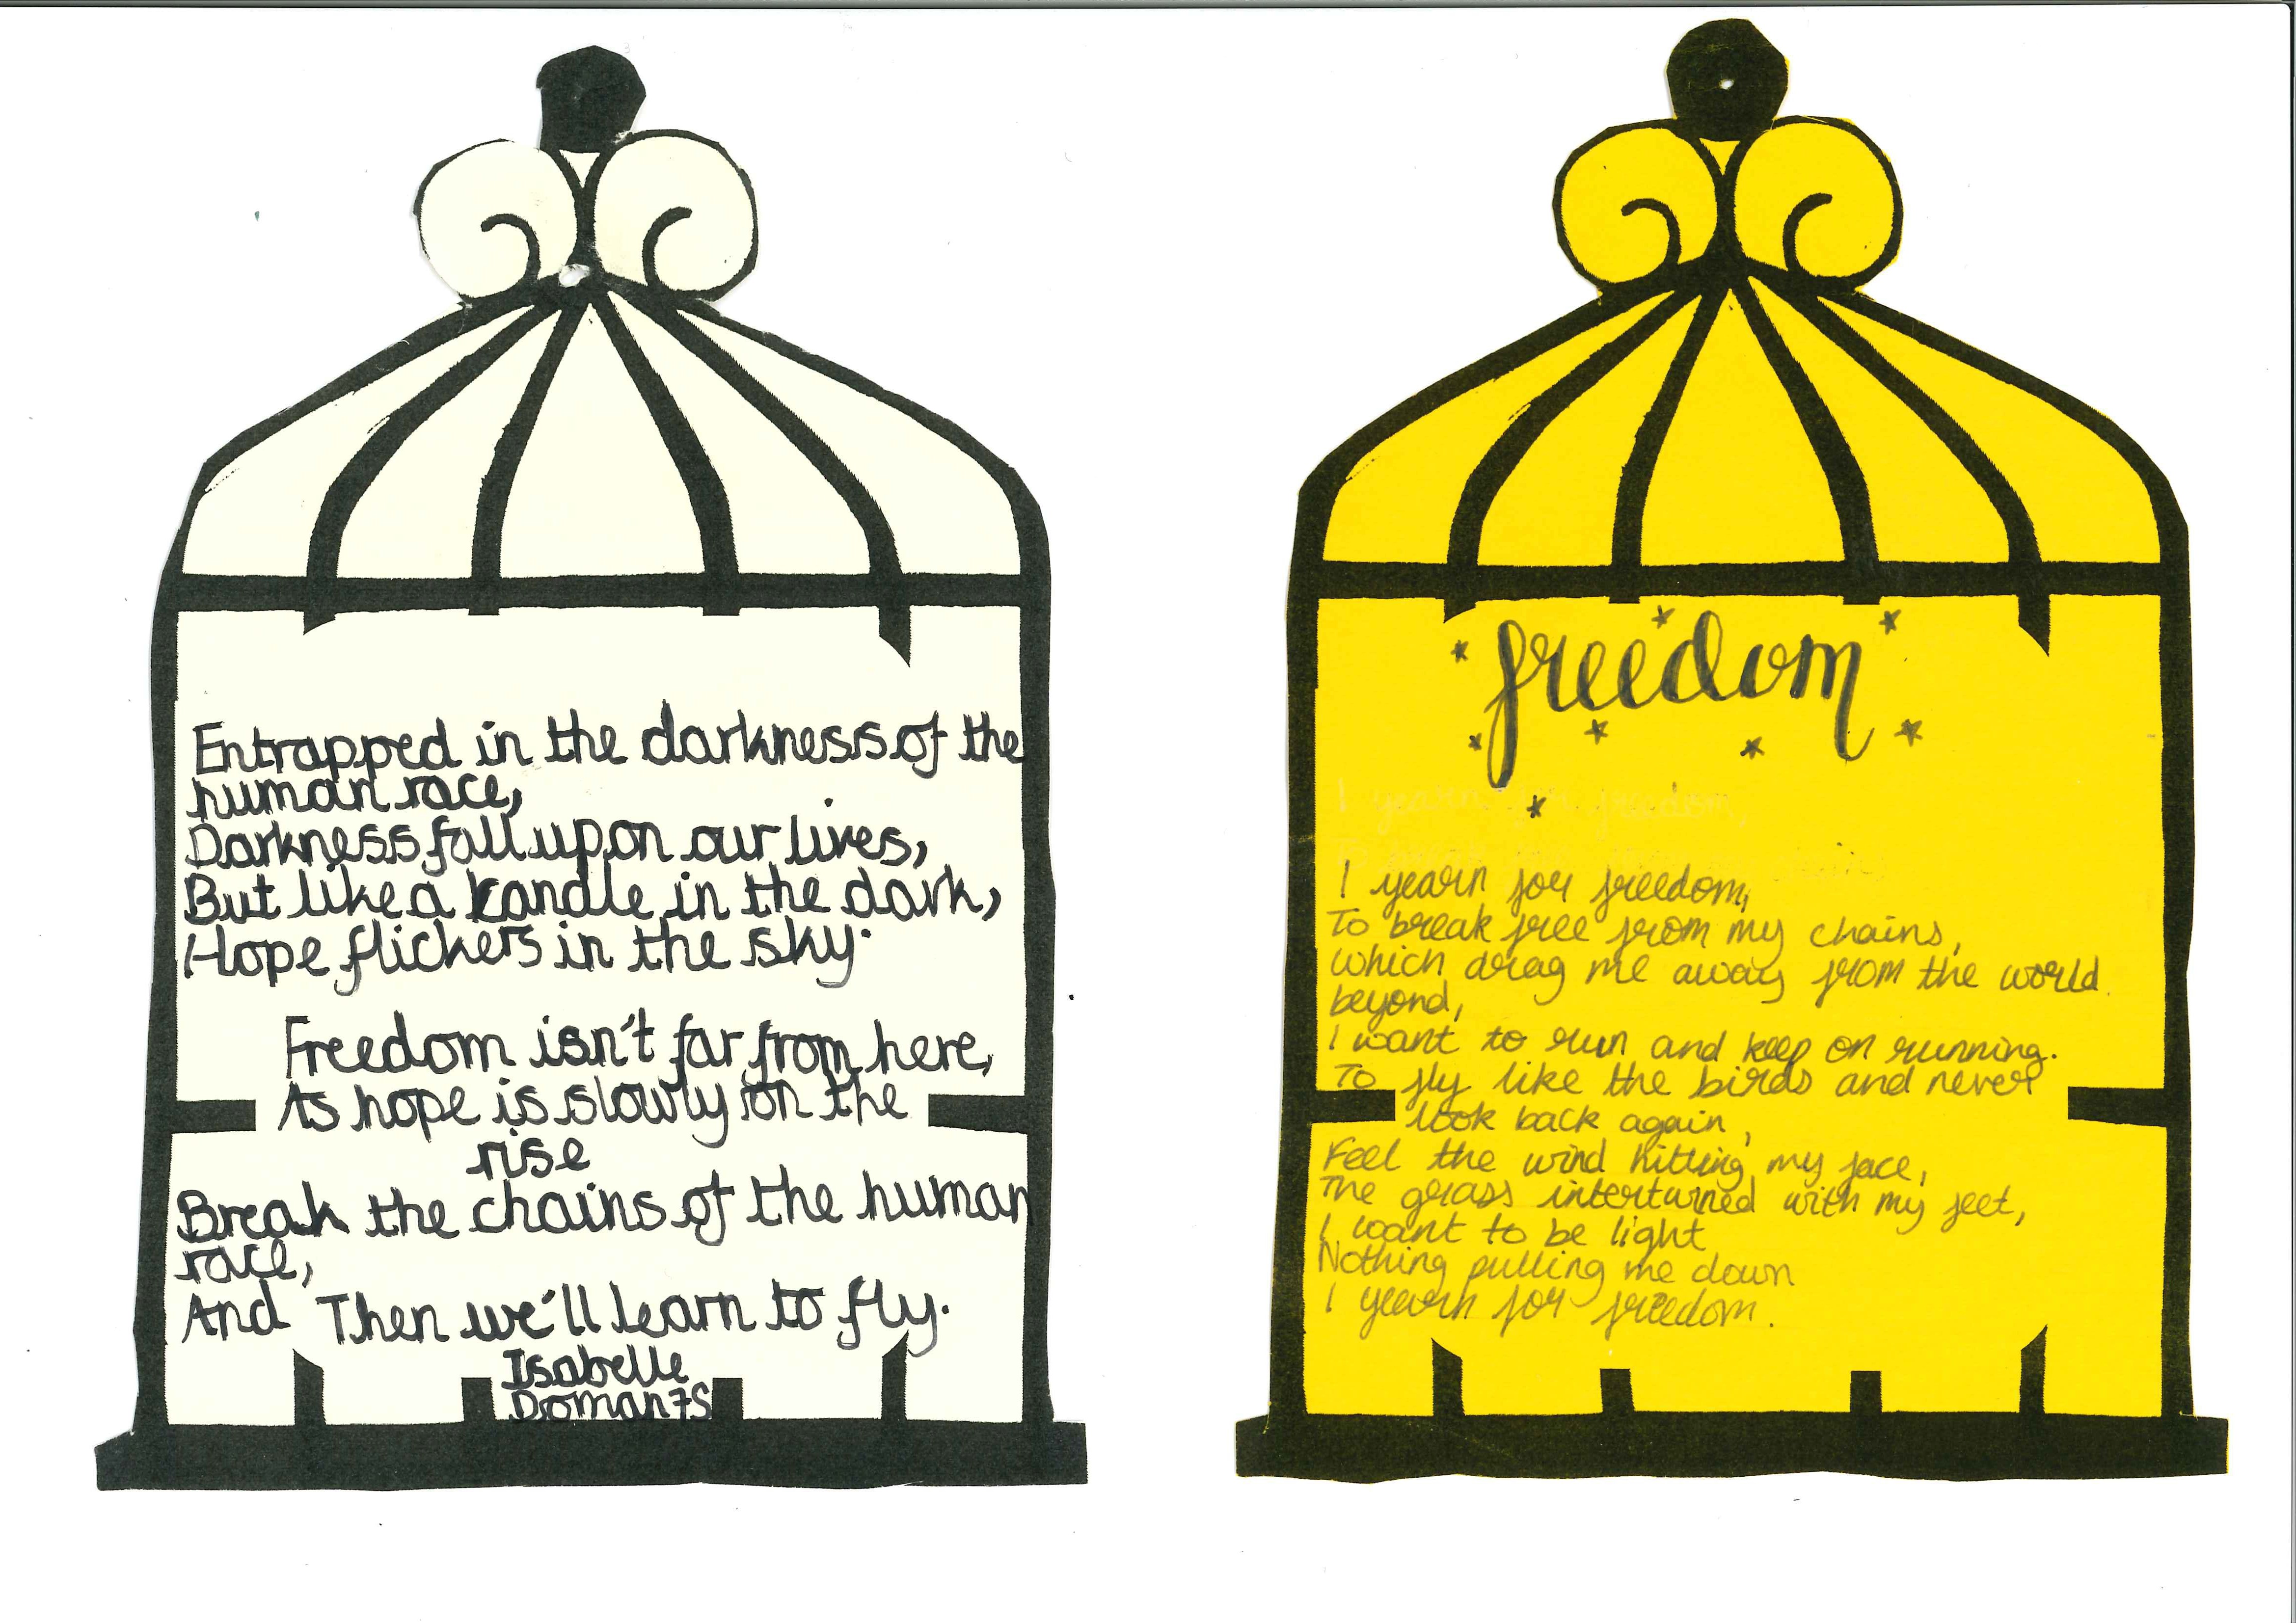 Entrapped in the darkness of the
human race,
Darkness fall upon our lives,
But like a candle in the dark,
Hope flickers in the sky.
Freedom isn't far from here,
As hope is slowly on the
rise
Break the chains of the human
race,
And Then we'll learn to fly.
Isabelle
Doman 7S
freedom
I yearn for freedom,
I yearn for freedom,
To break free from my chains,
which drag me away from the world
beyond,
I want to run and keep on running.
To fly like the birds and never
look back again,
Feel the wind hitting my face,
The grass interturned with my feet,
I want to be light
Nothing pulling me down
I yearn for freedom.